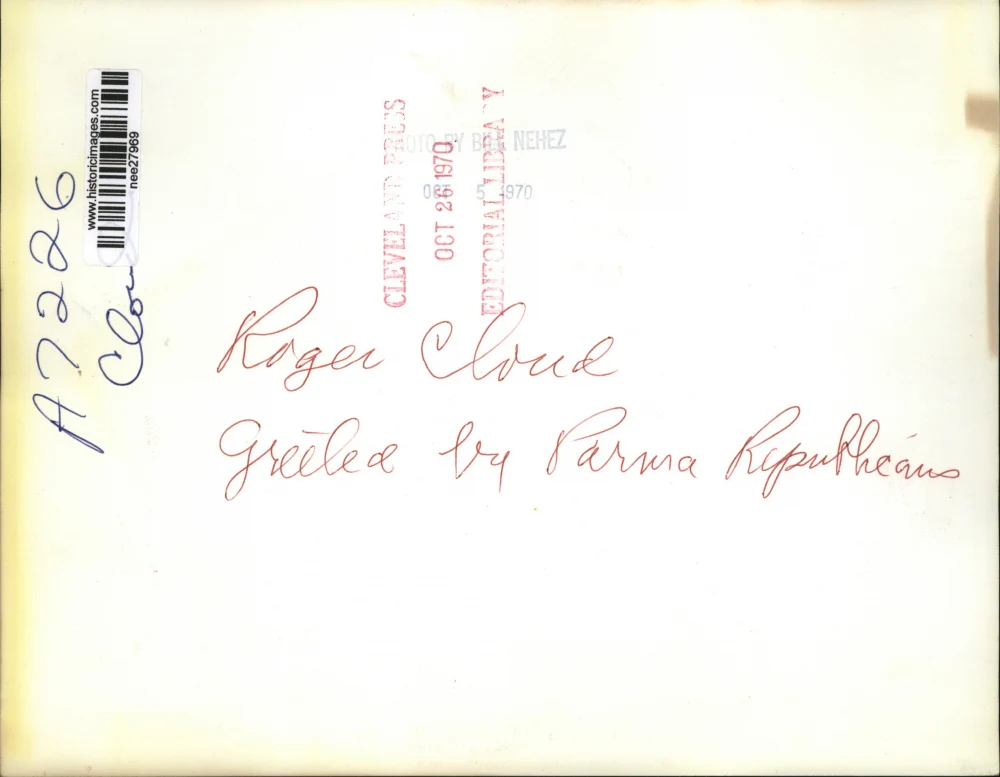 A7226
Clou
www.historicimages.com
nee27969
CLEVELAND PRESS
OCT 26 1970
EDITORIAL LIBRA Y
OTO BY BILL NEHEZ
OCT 5 1970
Roger Cloud
Greeted by Parma Republicans